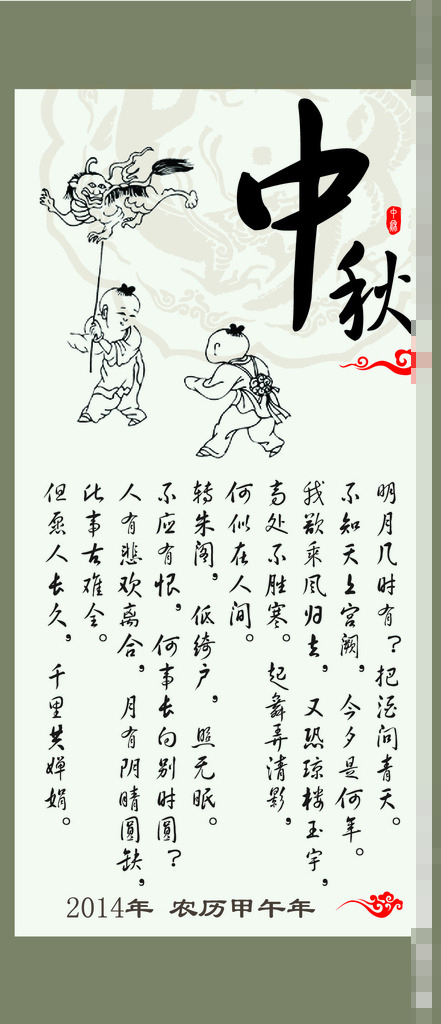 中秋
中秋
明月几时有？把酒问青天。
不知天上宫阙，今夕是何年。
我欲乘风归去，又恐琼楼玉宇，
高处不胜寒。起舞弄清影，
何似在人间。
转朱阁，低绮户，照无眠。
不应有恨，何事长向别时圆？
人有悲欢离合，月有阴晴圆缺，
此事古难全。
但愿人长久，千里共婵娟。
2014年 农历甲午年